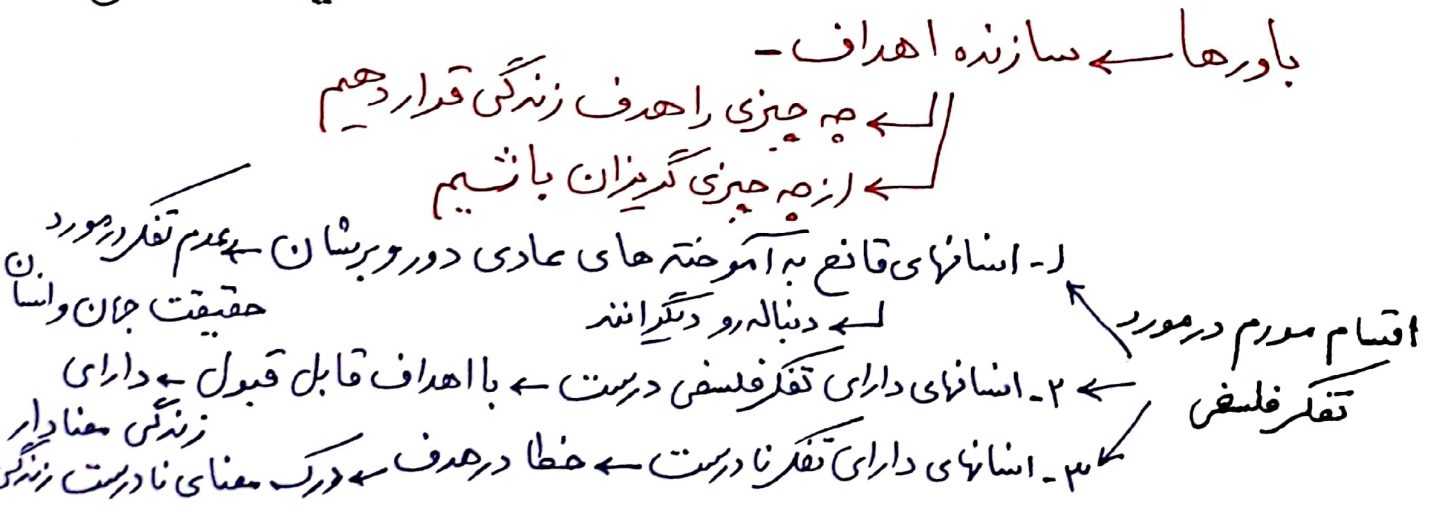 باورها ← سازنده اهداف -
← چه چیزی را هدف زندگی قرار دهیم
← از چه چیزی گریزان باشیم
۱- انسانهای قانع به آموخته های عادی دور و برشان ← عدم تفکر در مورد
حقیقت جهان و انسان
← دنباله رو دیگرانند
اقسام مردم در مورد
تفکر فلسفی
۲- انسانهای دارای تفکر فلسفی درست ← با اهداف قابل قبول ← دارای
زندگی معنادار
۳- انسانهای دارای تفکر نادرست ← خطا در هدف ← درک معنای نادرست زندگی